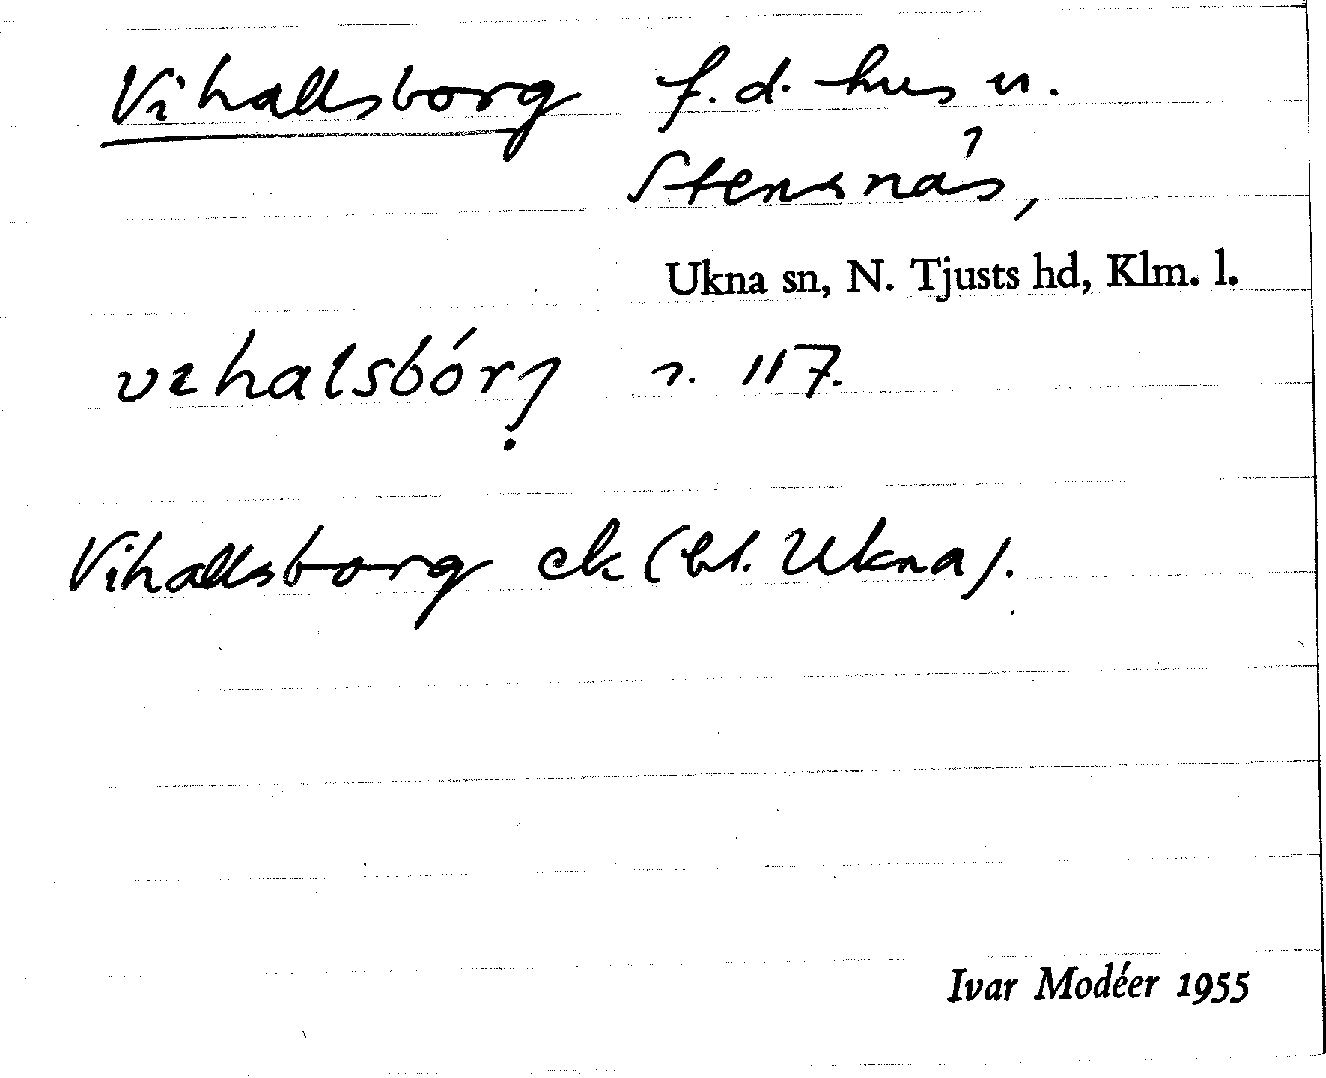 Vihallsborg f.d. hus u.
Stensnäs,
Ukna sn, N. Tjusts hd, Klm. l.
n. 117.
Vihallsborg ek (bl. Ukna).
Ivar Modéer 1955